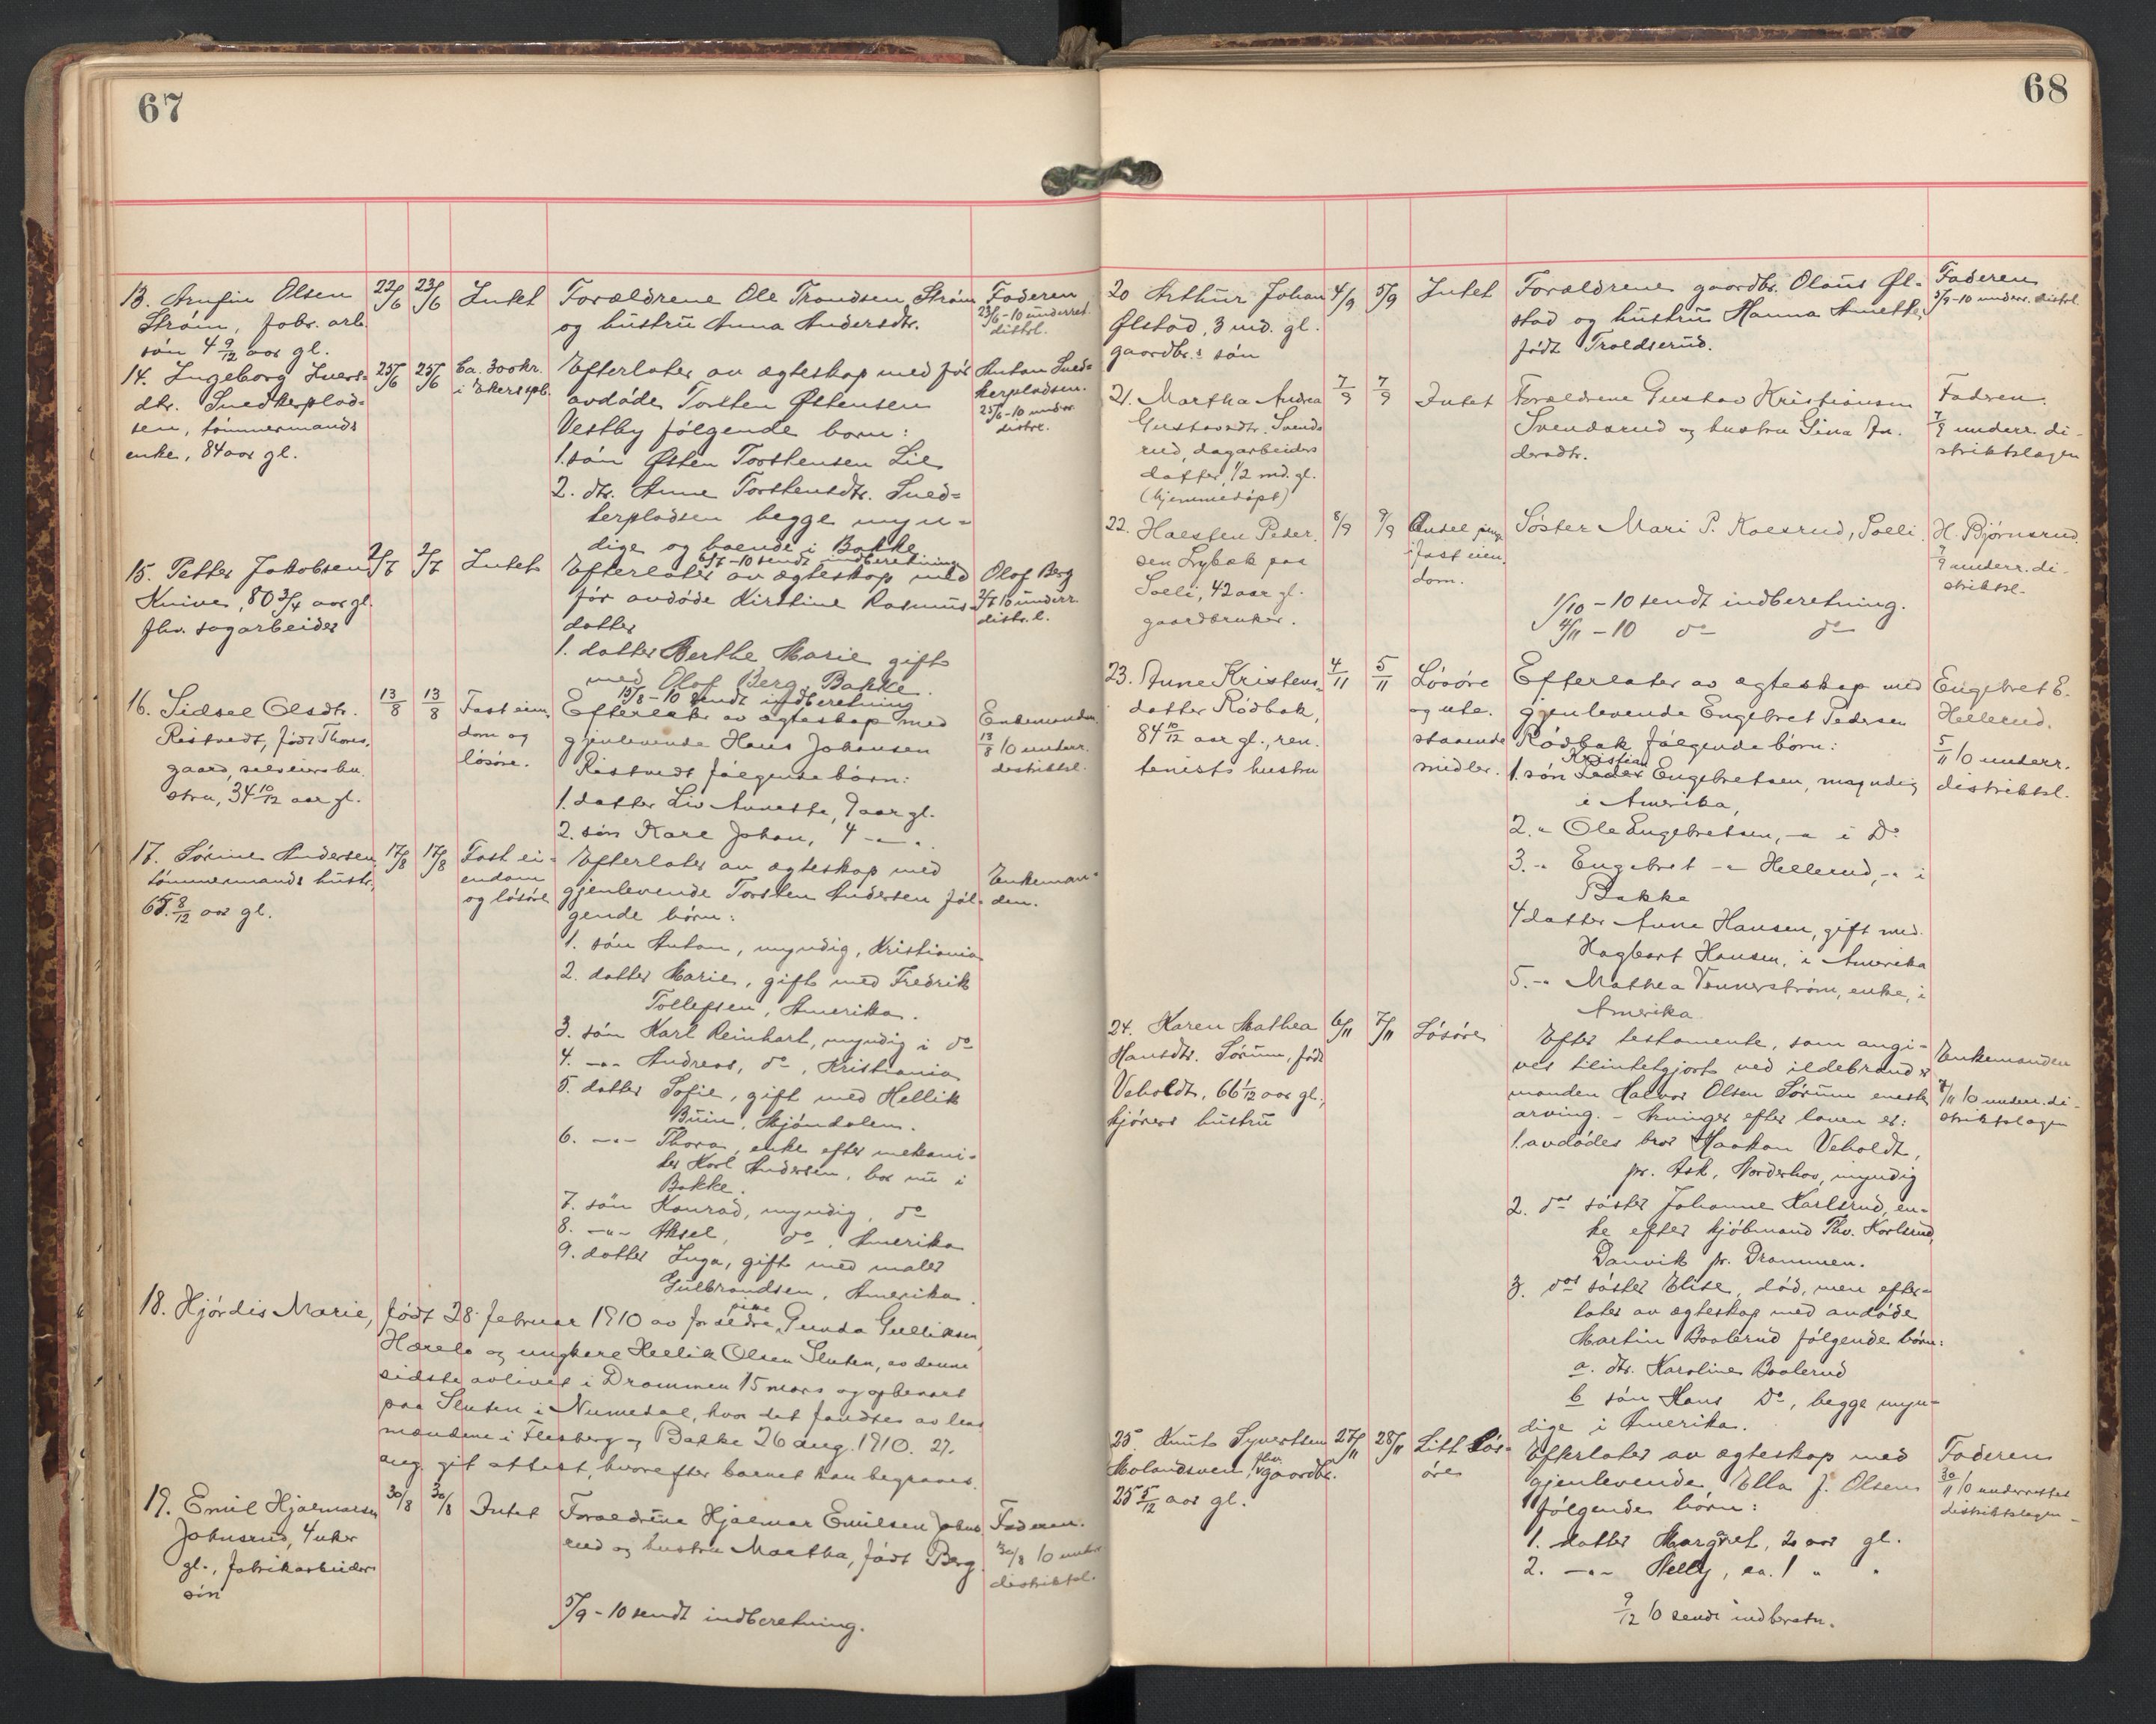 67
13. Arnfin Olsen
Strøm, fabr. arb.
søn 4 9/12 aar gl.
22/6
23/6
Intet
Forældrene Ole Trondsen Strøm
og hustru Anna Andersdtr.
Faderen
23/6 - 10 underret.
distrl.
14. Ingeborg Ivers-
dtr. Snedkerplad-
sen, tømmermands
enke, 84 aar gl.
25/6
25/6
Ca. 300 kr.
i Ekers spb.
Efterlater av ægteskap med før
avdøde Torsten Østensen
Vestby følgende børn:
1. søn Østen Torstensen Lie
2. dtr. Anne Torstensdtr. Sned-
kerpladsen begge myn-
dige og boende i Bakke
6/7 - 10 sendt indberetning
Anton Sned-
kerpladsen.
25/6 - 10 underr.
distrl.
15. Petter Jakobsen
Knive, 80 3/4 aar gl.
fhv. sagarbeider
2/7
2/7
Intet
Efterlater av ægteskap med
før avdøde Kirstine Rasmus-
datter
1. datter Berthe Marie gift
med Olof Berg, Bakke.
15/8 - 10 sendt indberetning
Olof Berg
2/7 10 underr.
distr. l.
16. Sidsel Olsdtr.
Ristvedt, født Thors-
gaard, selveiers hu-
stru, 34 10/12 aar gl.
13/8
13/8
Fast eien-
dom og
løsøre.
Efterlater av ægteskap med
gjenlevende Hans Johansen
Ristvedt følgende børn:
1. datter Liv Annette, 9 aar gl.
2. søn Kare Johan, 4 - " -
Enkemanden.
13/8 10 underr.
distriktsl.
17. Sørine Andersen
tømmermands hustr.
65 8/12 aar gl.
17/8
17/8
Fast ei-
endom
og løsøre
Efterlater av ægteskap med
gjenlevende Torsten Andersen føl-
gende børn:
1. søn Anton, myndig, Kristiania
2. datter Marie, gift med Fredrik
Tollefsen, Amerika.
3. søn Karl Reinhart, myndig i do
4. -"- Andreas, do, Kristiania
5. datter Sofie, gift med Hellik
Buin, Mjøndalen.
6. -"- Thora, enke efter mekani-
ker Karl Andersen, bor nu i
Bakke.
7. søn Konrad, myndig, do
8. -"- Aksel, do, Amerika
9. datter Inga, gift med maler
Gulbrandsen, Amerika.
Enkeman-
den.
18. Hjørdis Marie, født 28. februar 1910 av forældre pike Gunda Gulliksen
Hærelo og ungkare Hellik Olsen Sluten, av denne
sidste avlivet i Drammen 15 mars og opbevart
paa Sluten i Numedal, hvor det fandtes av lens-
mændene i Flesberg og Bakke 26 aug. 1910. 27.
aug. git attest, hvorefter barnet kan begraves.
19. Emil Hjalmarsen
Johnsrud, 4 uker
gl., fabrikarbeiders
søn
30/8
30/8
Intet
Forældrene Hjalmar Emilsen Johns-
rud og hustru Martha, født Berg.
5/9 - 10 sendt indberetning.
Faderen.
30/8 10 underr.
distriktsl.
68
20 Arthur Johan
Ølstad, 3 md. gl.
gaardbr.s søn
4/9
5/9
Intet
Forældrene gaardbr. Olaus Øl-
stad og hustru Hanna Anette,
født Troldserud.
Faderen
5/9 - 10 underr. distrl.
21. Martha Andrea
Gustavsdtr. Svends-
rud, dagarbeiders
datter, 1/2 md. gl.
(hjemmedøpt)
7/9
7/9
Intet
Forældrene Gustav Kristiansen
Svendsrud og hustru Gina An-
dersdtr.
Faderen.
7/9 underr. di-
striktslægen
22. Halsten Peder-
sen Lybæk paa
Soeli, 42 aar gl.
gaardbruker.
8/9
9/9
i fast eien-
dom.
Søster Mari P. Kolsrud, Soeli.
1/10 - 10 sendt indberetning.
4/11 - 10 do do
H. Bjørnsrud.
9/9 underr. di-
striktsl.
23. Anne Kristens-
datter Rødbak,
84 10/12 aar gl., ren-
tenists hustru
4/11
5/11
Løsøre
og ute-
staaende
midler.
Efterlater av ægteskap med
gjenlevende Engebret Pedersen
Rødbak følgende børn:
1. søn Kristian Engebretsen, myndig
i Amerika,
2. " Ole Engebretsen, -" i Do
3. -" Engebret -" Hellerud, -" i
Bakke
4 datter Anne Hansen, gift med
Hagbart Hansen, i Amerika
5. -" Mathea Vennerstrøm, enke, i
Amerika
Engebret E.
Hellerud.
5/11 10 underr.
distriktsl.
24. Karen Mathea
Hansdtr. Sørum, født
Veholdt, 66 1/12 aar gl.,
kjørers hustru
6/11
7/11
Løsøre
Efter testamente, som angi-
ves tilintetgjort ved ildebrand er
manden Halvor Olsen Sørum eneste
arving. - Arvinger efter loven er:
1. avdødes bror Haakon Veholdt,
pr. Ask, Norderhov, myndig
2. dos søster Johanne Karlsrud, en-
ke efter kjøbmand Thv. Karlsrud,
Danvik pr. Drammen.
3. dos søster Elise, død, men efter-
later av ægteskap med avdøde
Martin Baalerud følgende børn:
a. dtr. Karoline Baalerud
b søn Hans Do, begge myn-
dige i Amerika.
Enkemanden
7/11 10 underr. di-
striktslægen
25. Knut Syvertsen
Molandsveen, fhv. gaardbr.
25 5/12 aar gl.
27/11
28/11
Litt løs-
øre
Efterlater av ægteskap med
gjenlevende Ella J. Olsen
følgende børn:
1. datter Margret, 2 aar gl.
2. -"- Helly, ca. 1 " "
9/12 10 sendt indberetn.
Faderen
30/11 10 underrettet
distriktslægen